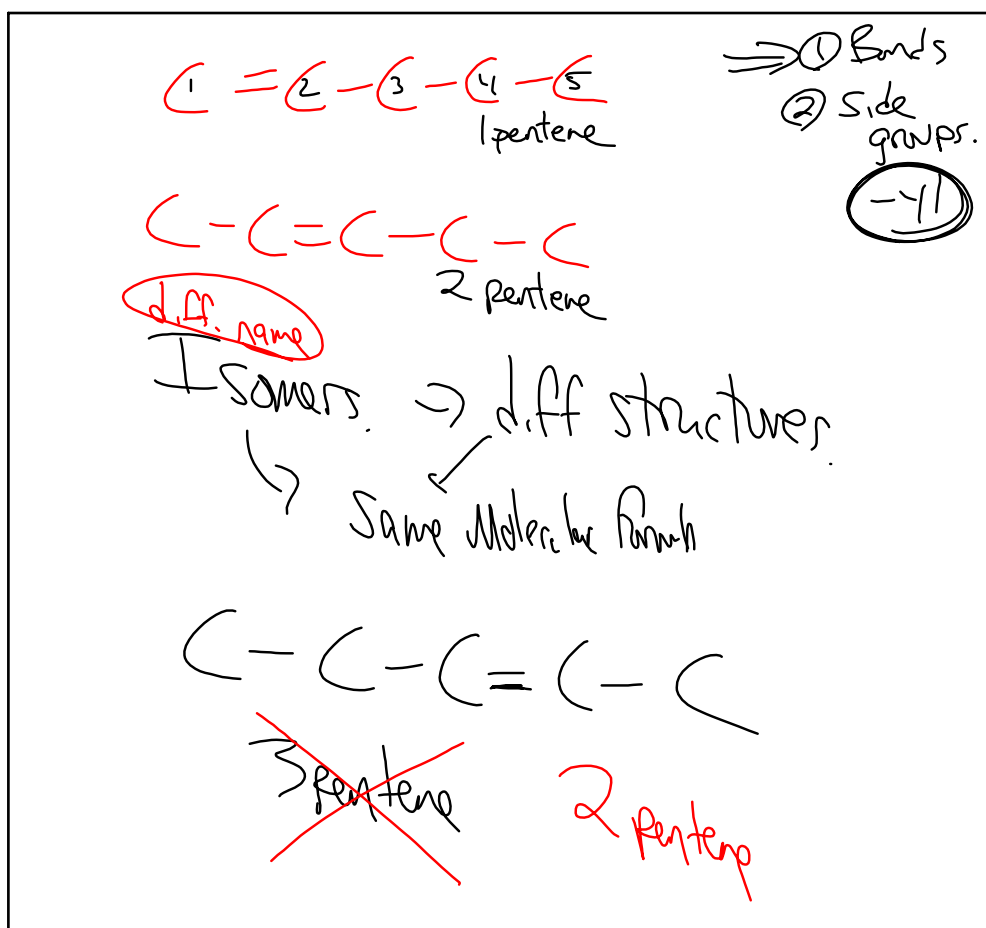 C = C - C - C - C
1 2 3 4 5
1 pentene
⇒ ① Bonds
② Side
groups.
-yl
C - C = C - C - C
2 pentene
diff. name
Isomers. → diff structures.
Same Molecular
C - C - C = C - C
3 pentene
2 pentene